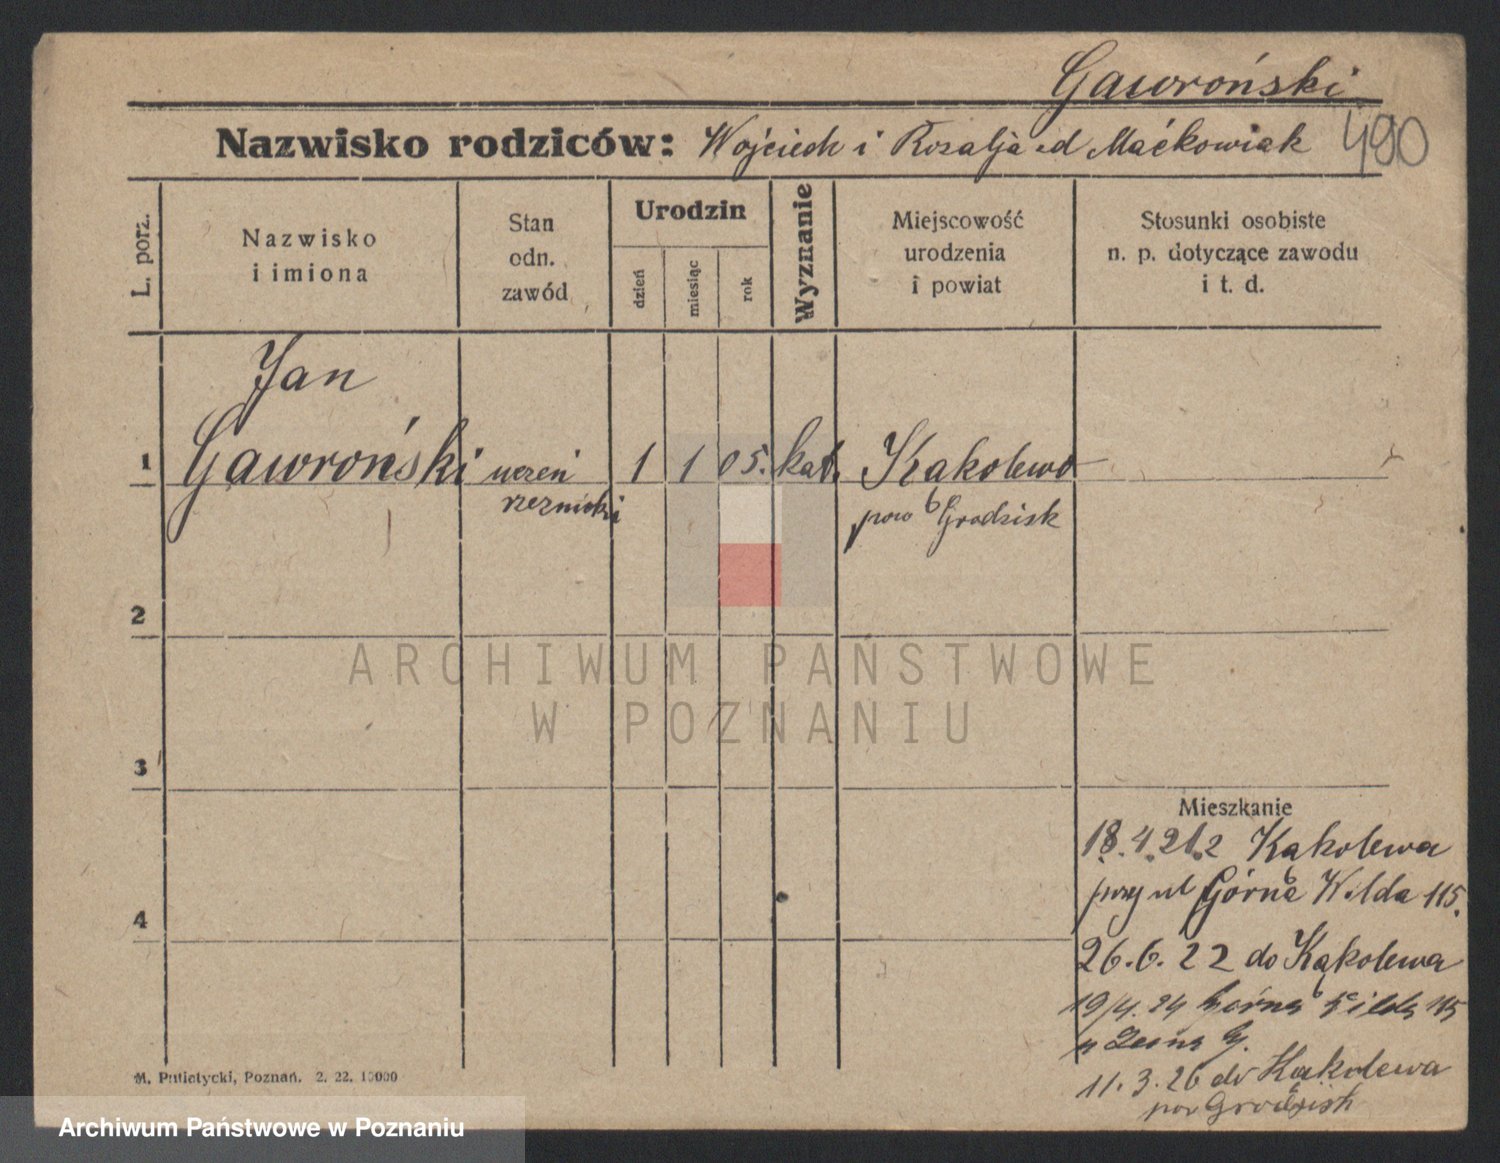 Gawroński
Nazwisko rodziców: Wojciech i Rozalja od Maćkowiak 490
L. porz.
Nazwisko
i imiona
Stan
odn.
zawód
Urodzin
dzień
miesiąc
rok
Wyznanie
Miejscowość
urodzenia
i powiat
Stosunki osobiste
n. p. dotyczące zawodu
i t. d.
Jan
1 Gawroński uczeń 1 1 05. kat. Kąkolewo
rzeźnicki pow Grodzisk
2
ARCHIWUM PAŃSTWOWE
W POZNANIU
3
Mieszkanie
18.4.21.2 Kąkolewa
przy ul Górna Wilda 115.
4
26.6.22 do Kąkolewa
19/4.24 Górna Wilda 115
11.3.26 do Kąkolewa
pow Grodzisk
M. Putiatycki, Poznań. 2. 22. 10000
Archiwum Państwowe w Poznaniu